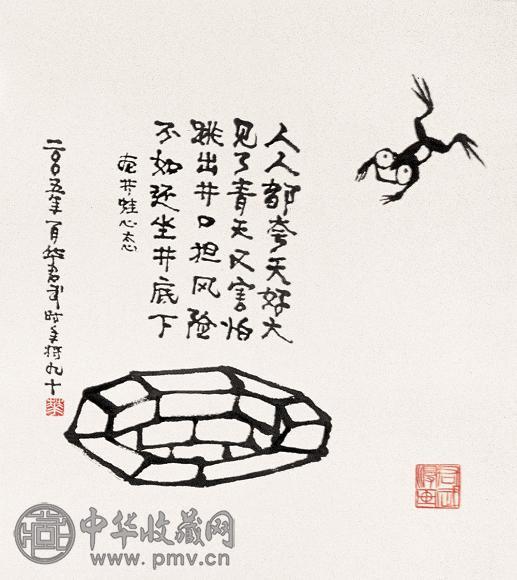 人人都夸天好大
见了青天又害怕
跳出井口担风险
不如还坐井底下
井蛙心态
二〇〇五年一月华君武时年将九十
中华收藏网
www.pmv.cn